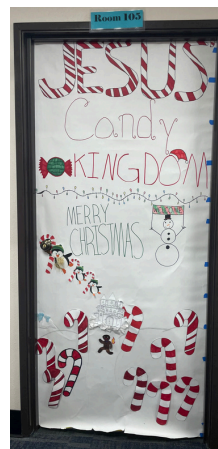 Room 105
JESUS'
Candy
KINGDOM
WELCOME
MERRY
CHRISTMAS